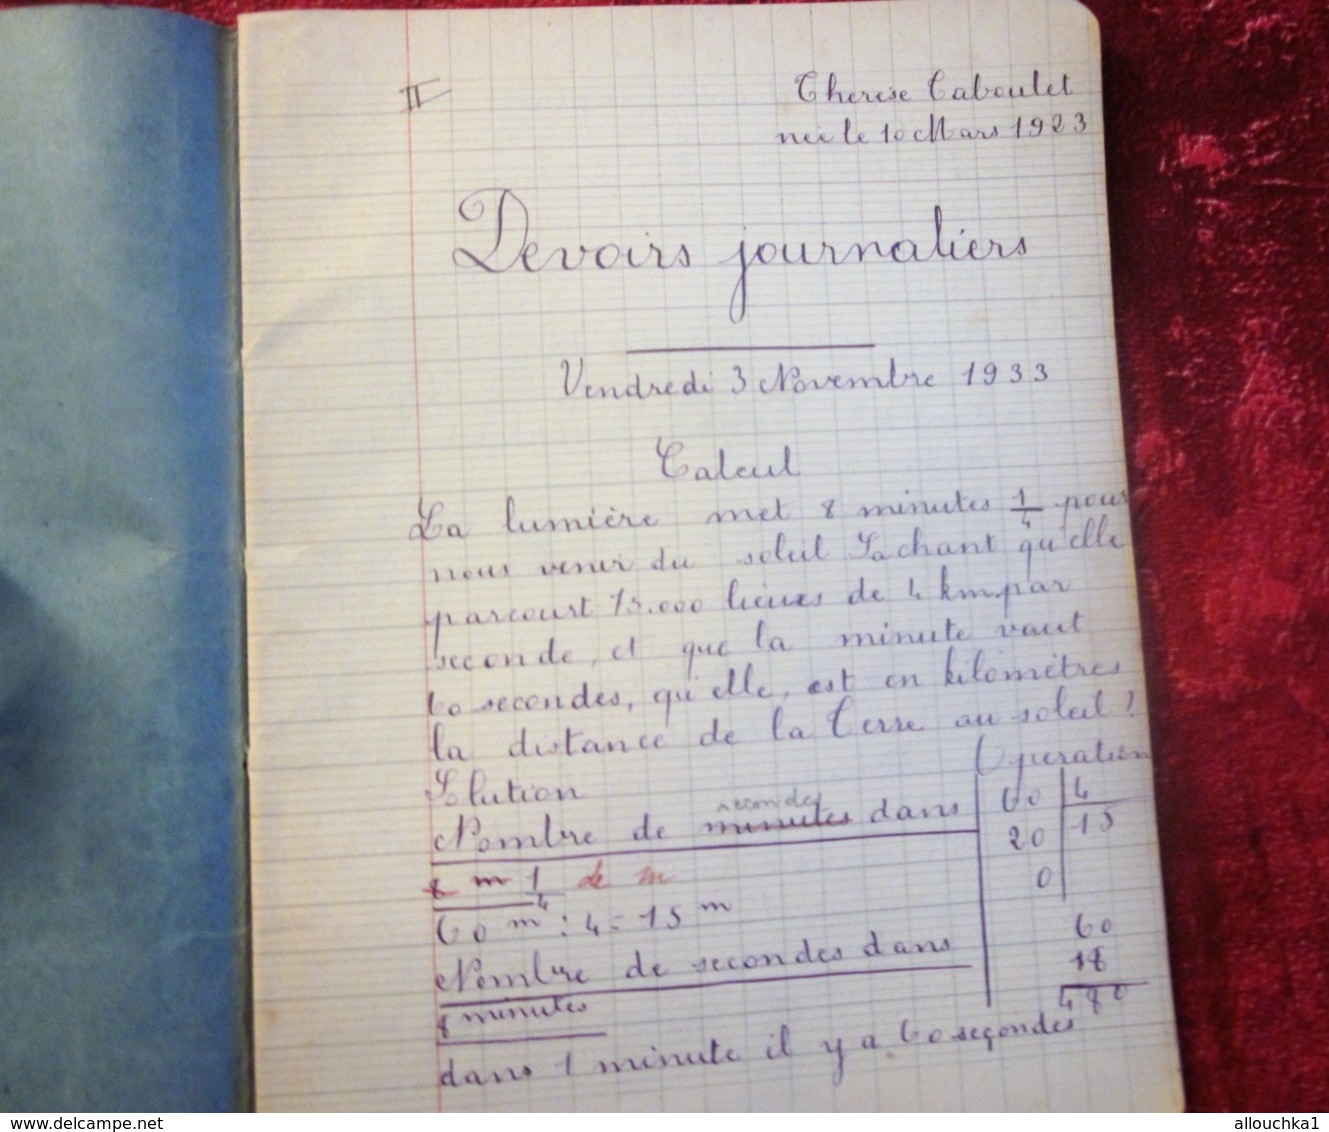 II
Therese Caboulet
née le 10 Mars 1923
Devoirs journaliers
Vendredi 3 Novembre 1933
Calcul
La lumière met 8 minutes 1/4 pour
nous venir du soleil Sachant qu'elle
parcourt 75.000 lieues de 4 km par
seconde, et que la minute vaut
60 secondes, qu'elle, est en kilomètres
la distance de la Terre au soleil?
Solution
Opération
secondes
Nombre de minutes dans
60 4
8 m 1/4 de m
20 15
0
60 m : 4 = 15 m
Nombre de secondes dans
60
18
8 minutes
480
dans 1 minute il y a 60 secondes
www.delcampe.net
allouchka1